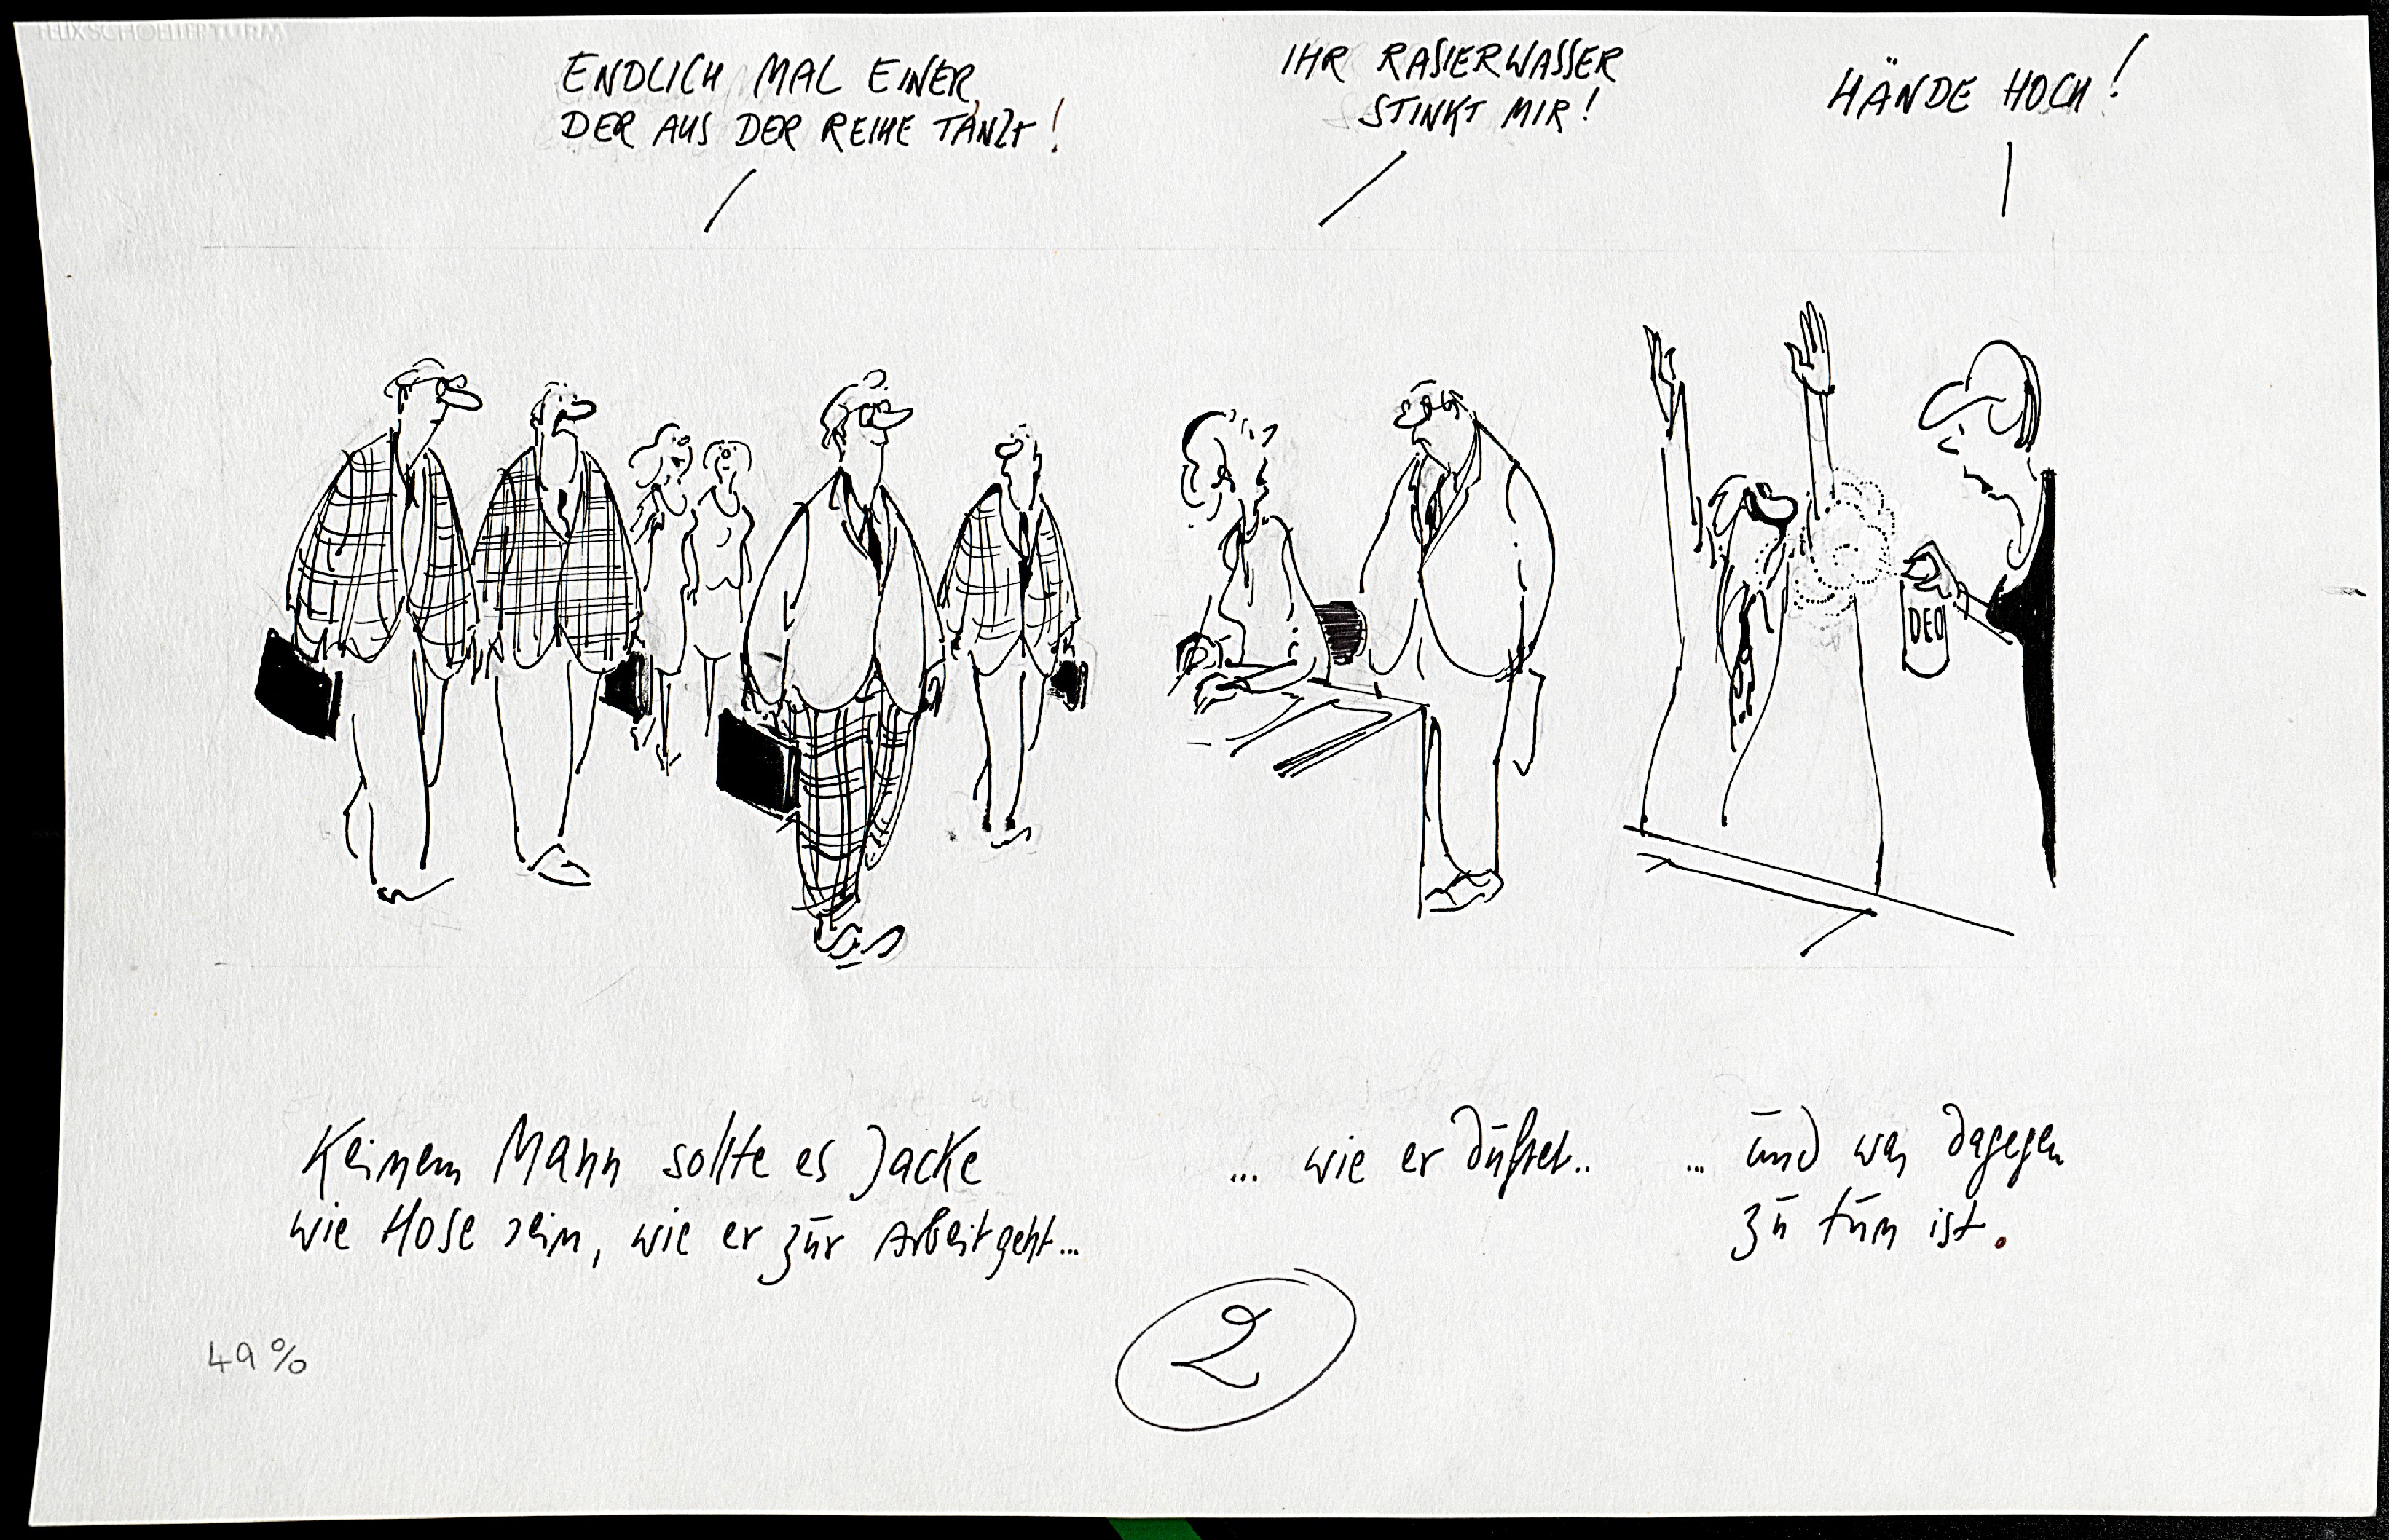 FELIX SCHOELLER TURM
ENDLICH MAL EINER,
DER AUS DER REIHE TANZT!
IHR RASIERWASSER
STINKT MIR!
HÄNDE HOCH!
DEO
Keinem Mann sollte es Jacke
wie Hose sein, wie er zur Arbeit geht...
... wie er duftet..
... und was dagegen
zu tun ist.
2
49%